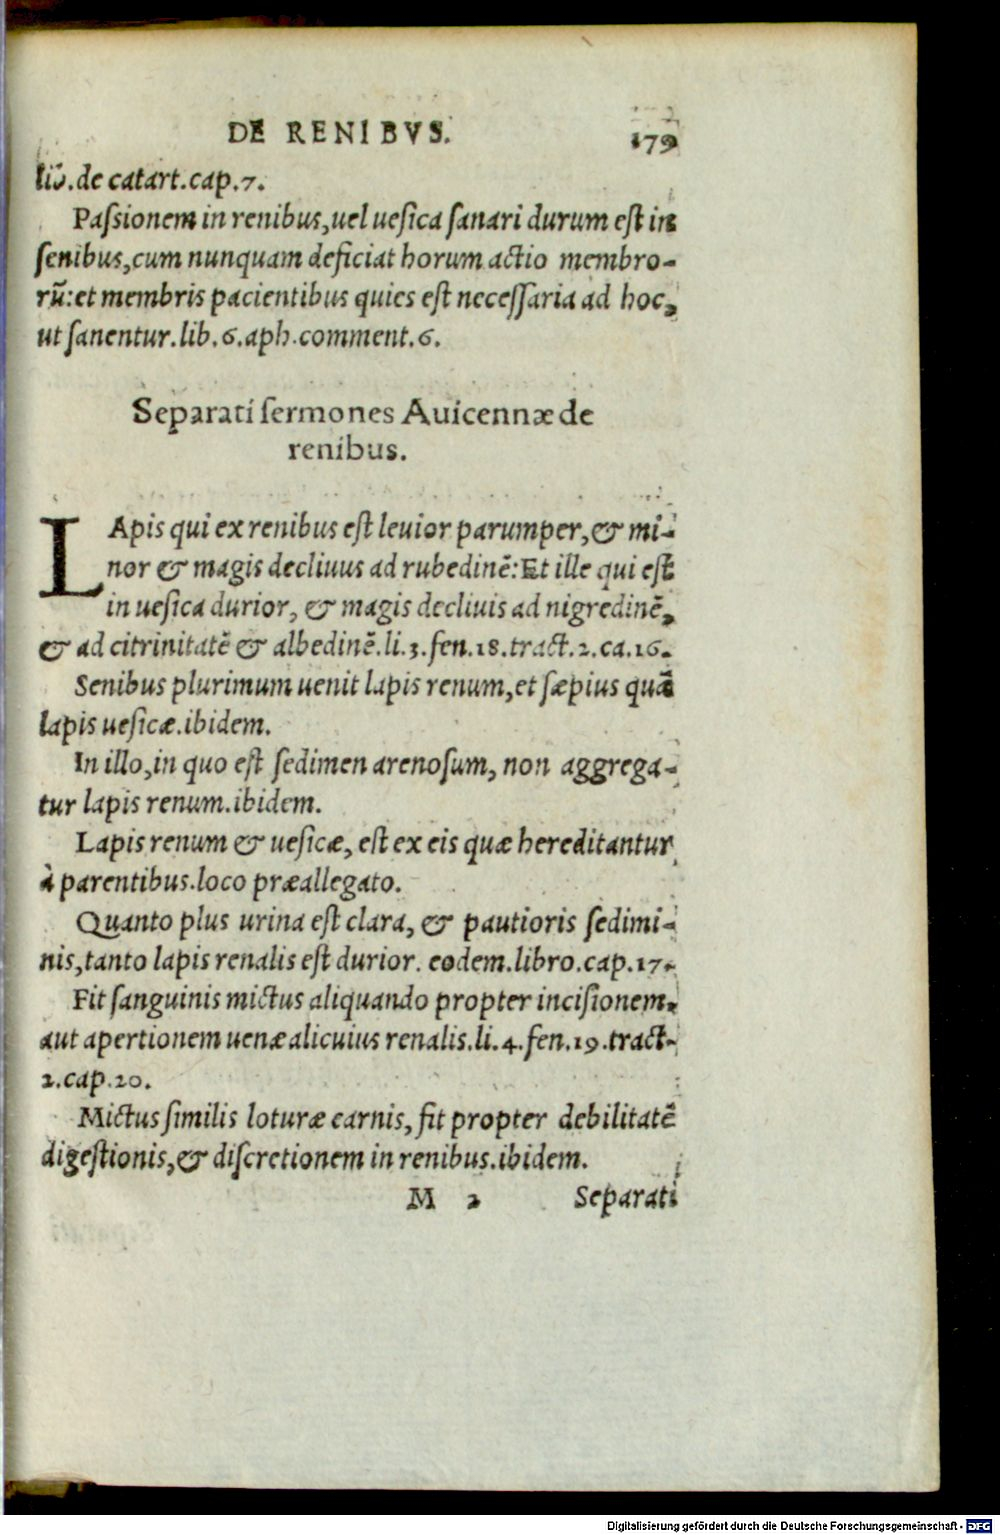 DE RENIBVS.
179
lib.de catart.cap.7.
Paſsionem in renibus,uel ueſica ſanari durum eſt in
ſenibus,cum nunquam deficiat horum actio membro-
rū:et membris pacientibus quies eſt neceſſaria ad hoc,
ut ſanentur.lib.6.aph.comment.6.
Separati ſermones Auicennæ de
renibus.
LApis qui ex renibus eſt leuior parumper,& mi-
nor & magis decliuus ad rubedinē:Et ille qui eſt
in ueſica durior, & magis decliuis ad nigredinē,
& ad citrinitatē & albedinē.li.3.fen.18.tract.2.ca.16.
Senibus plurimum uenit lapis renum,et ſæpius quā
lapis ueſicæ.ibidem.
In illo,in quo eſt ſedimen arenoſum, non aggrega-
tur lapis renum.ibidem.
Lapis renum & ueſicæ, eſt ex eis quæ hereditantur
à parentibus.loco præallegato.
Quanto plus urina eſt clara, & pautioris ſedimi-
nis,tanto lapis renalis eſt durior. eodem.libro.cap.17.
Fit ſanguinis mictus aliquando propter inciſionem,
aut apertionem uenæ alicuius renalis.li.4.fen.19.tract.
2.cap.20.
Mictus ſimilis loturæ carnis, fit propter debilitatē
digeſtionis,& diſcretionem in renibus.ibidem.
M 2 Separati
Digitalisierung gefördert durch die Deutsche Forschungsgemeinschaft - DFG